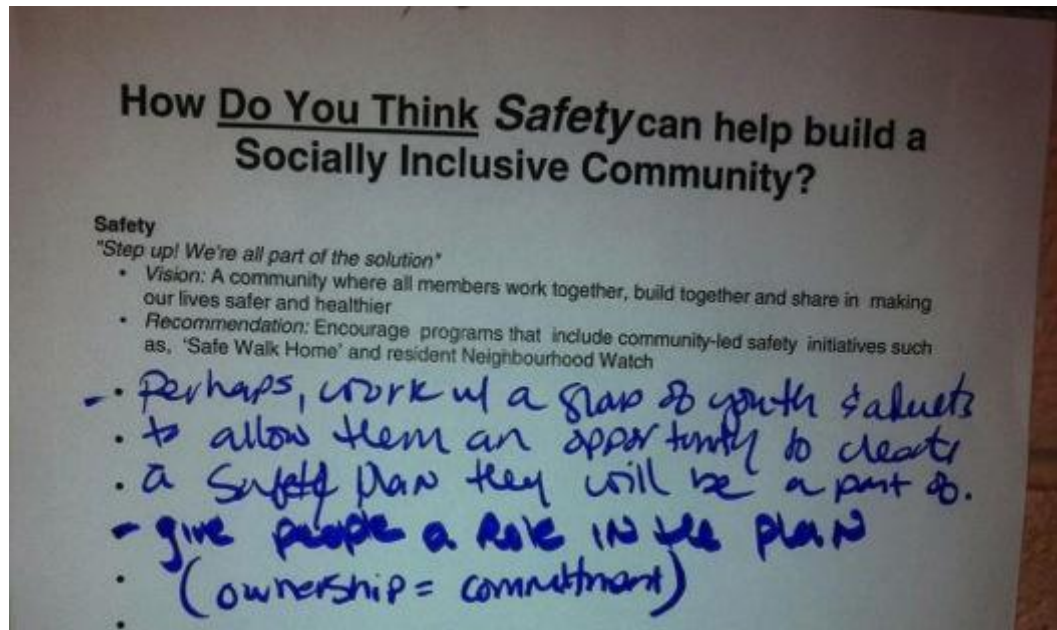 How Do You Think Safety can help build a
Socially Inclusive Community?
Safety
"Step up! We're all part of the solution"
• Vision: A community where all members work together, build together and share in making
our lives safer and healthier
• Recommendation: Encourage programs that include community-led safety initiatives such
as, 'Safe Walk Home' and resident Neighbourhood Watch
- • Perhaps, work w/ a group of youth & adults
• to allow them an opportunity to create
• a Safety plan they will be a part of.
- give people a Role in the plan
• (ownership = committment)
•